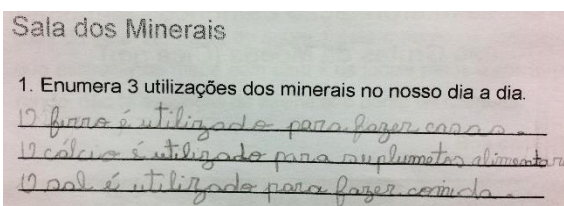 Sala dos Minerais
1. Enumera 3 utilizações dos minerais no nosso dia a dia.
O ferro é utilizado para fazer casas.
O cálcio é utilizado para suplumetos alimentar
O sal é utilizado para fazer comida.